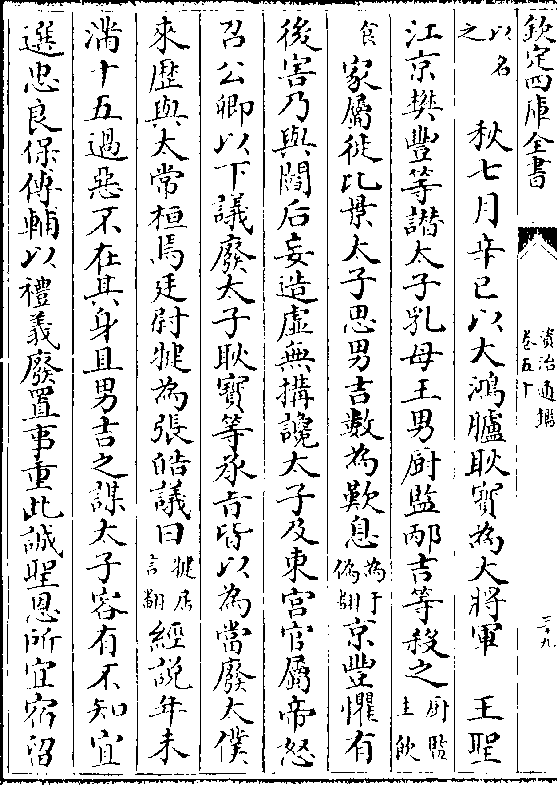 欽定四庫全書
資治通鑑
卷五十
三九
以名之　秋七月辛巳以大鴻臚耿寳為大將軍　王聖
江京樊豐等譖太子乳母王男厨監邴吉等殺之厨監主飲
食家屬徙比景太子思男吉數為歎息為于偽翻京豐懼有
後害乃與閻后妄造虚無搆讒太子及東宫官屬帝怒
召公卿以下議廢太子耿寳等承旨皆以為當廢太僕
來歴與太常桓焉廷尉犍為張皓議曰犍居言翻經說年未
滿十五過惡不在其身且男吉之謀太子容有不知宜
選忠良保傅輔以禮義廢置事重此誠聖恩所宜宿留